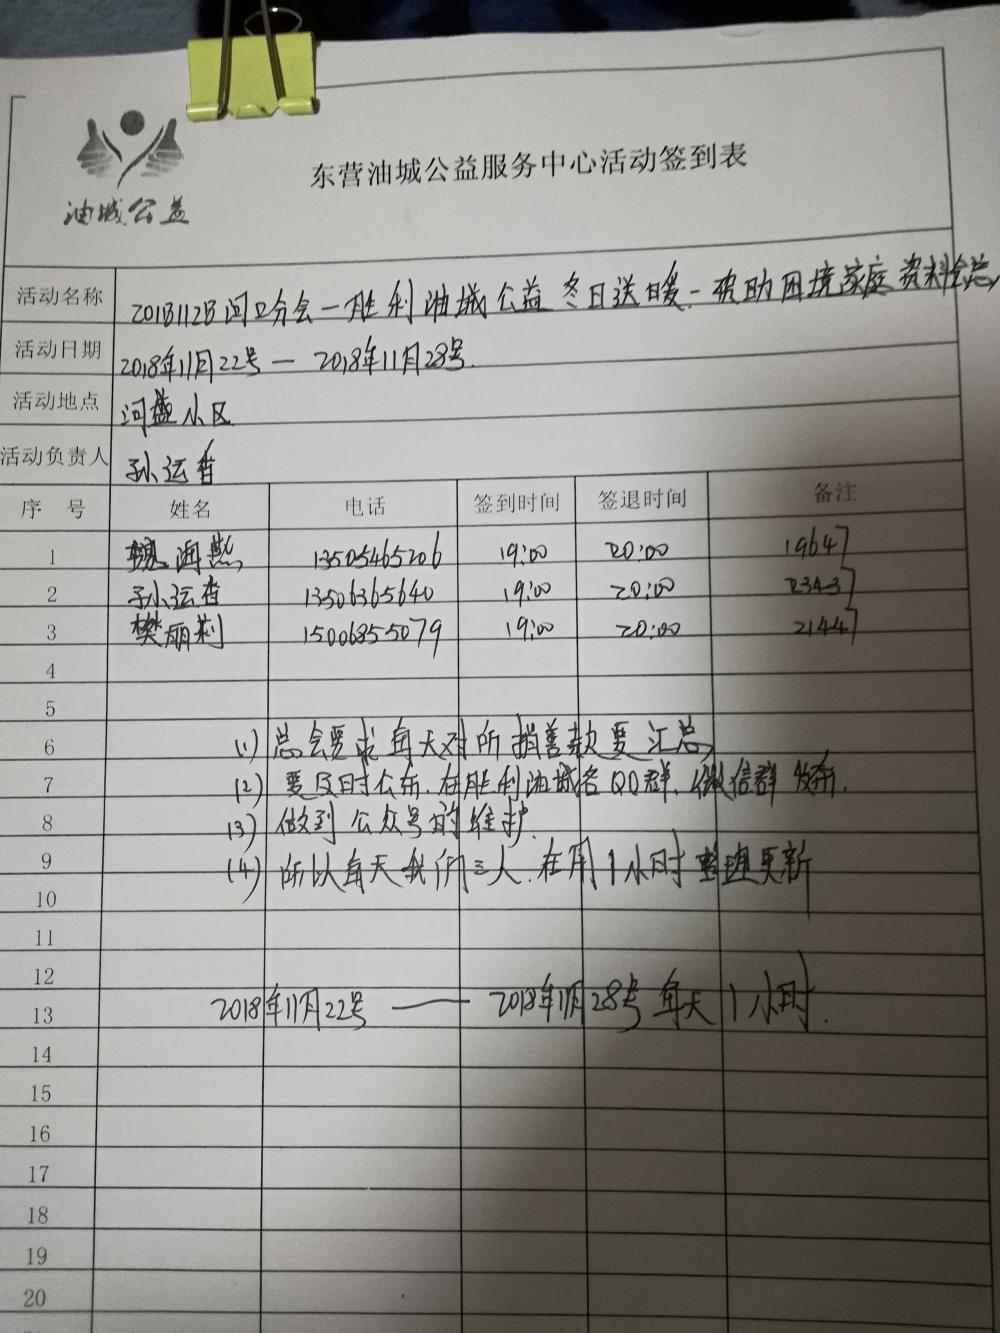 东营油城公益服务中心活动签到表
油城公益
活动名称 20181128河口分会一胜利油城公益冬日送暖-资助困境家庭资料汇总
活动日期 2018年11月22号 — 2018年11月28号.
活动地点 河盛小区
活动负责人 孙运香
序 号 姓名 电话 签到时间 签退时间 备注
1 魏海燕 13505465206 19:00 20:00 19647
2 孙运香 13506365640 19:00 20:00 23437
3 樊丽莉 15006855079 19:00 20:00 21447
4
5
6 (1) 总会要求每天对所捐善款要汇总
7 (2) 要及时公布.在胜利油城各QQ群.微信群发布.
8 (3) 做到公众号的维护.
9 (4) 所以每天我们三人.在用1小时整理更新
10
11
12
13 2018年11月22号 — 2018年11月28号 每天1小时.
14
15
16
17
18
19
20